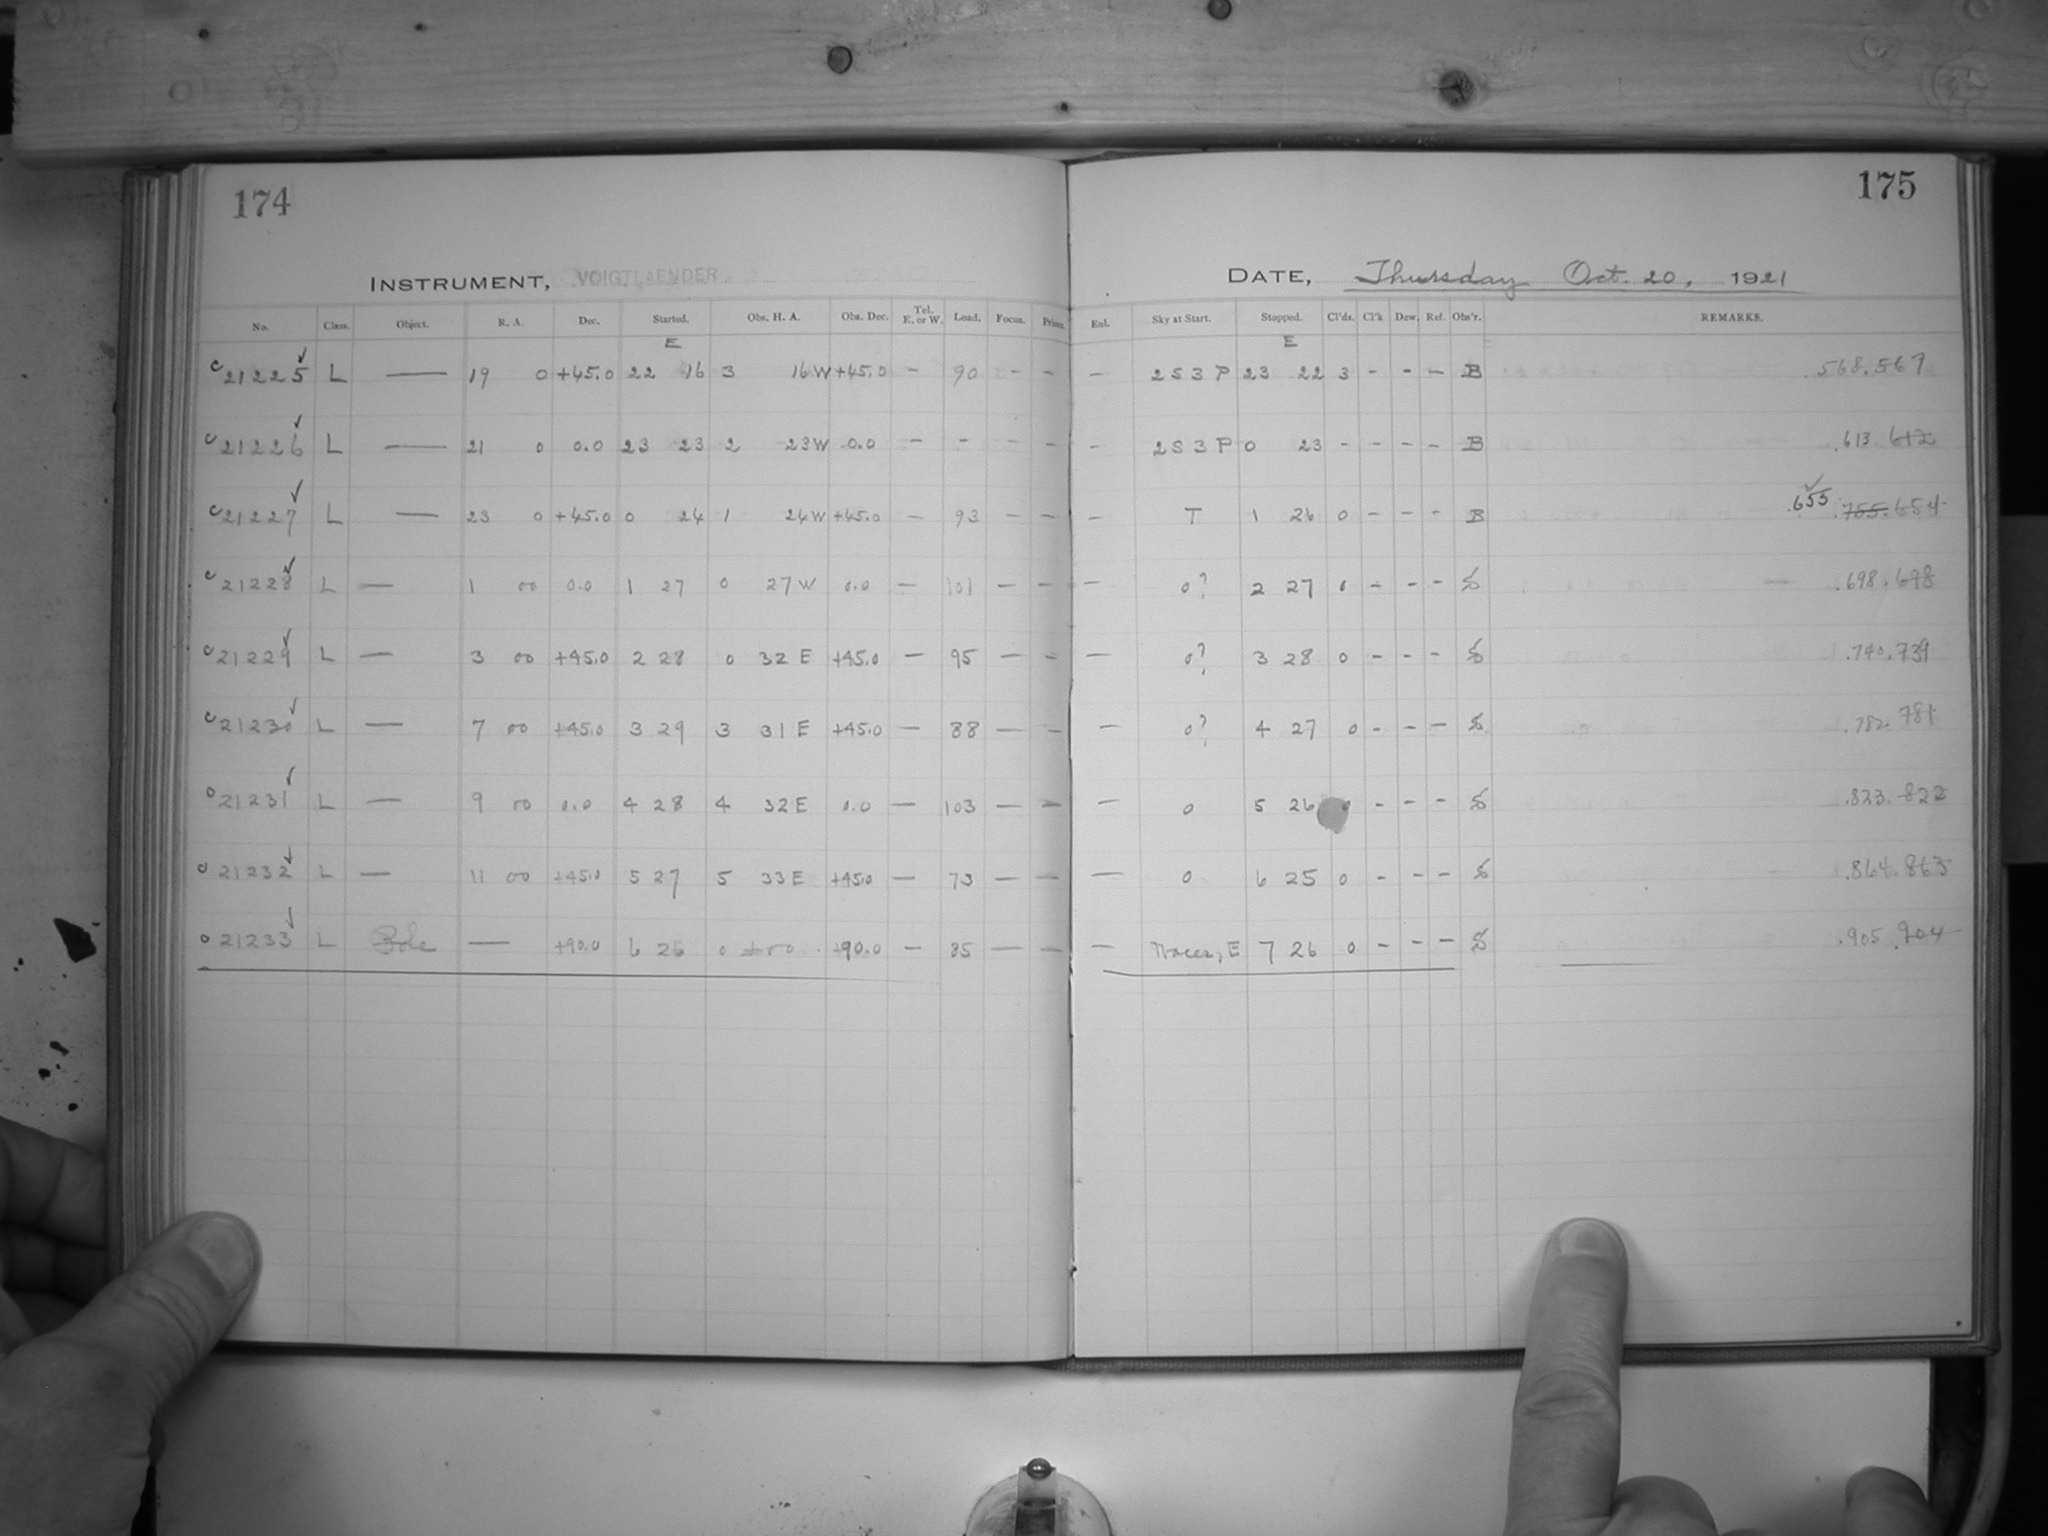 174
175
INSTRUMENT, VOIGTLAENDER
DATE, Thursday Oct. 20, 1921
No. Class. Object. R. A. Dec. Started. Obs. H. A. Obs. Dec. Tel. E. or W. Load. Focus. Prism. Enl. Sky at Start. Stopped. Cl'ds. Cl'k Dew. Ref. Obs'r. REMARKS.
E E
c 21225 ✓ L — 19 0 +45.0 22 16 3 16 W +45.0 - 90 - - - 2 S 3 P 23 22 3 - - - B .568.567
c 21226 ✓ L — 21 0 0.0 23 23 2 23 W 0.0 - - - - - 2 S 3 P 0 23 - - - - B .613.612
c 21227 ✓ L — 23 0 +45.0 0 24 1 24 W +45.0 - 93 - - - T 1 26 0 - - - B .655 ✓ .755.654
c 21228 ✓ L — 1 00 0.0 1 27 0 27 W 0.0 - 101 - - - 0? 2 27 0 - - - S .698.698
c 21229 ✓ L — 3 00 +45.0 2 28 0 32 E +45.0 - 95 - - - 0? 3 28 0 - - - S .740.739
c 21230 ✓ L — 7 00 +45.0 3 29 3 31 E +45.0 - 88 - - - 0? 4 27 0 - - - S .782.781
c 21231 ✓ L — 9 00 0.0 4 28 4 32 E 0.0 - 103 - - - 0 5 26 0 - - - S .823.822
c 21232 ✓ L — 11 00 +45.0 5 27 5 33 E +45.0 - 73 - - - 0 6 25 0 - - - S .864.863
c 21233 ✓ L Pole — +90.0 6 26 0 ±00 +90.0 - 85 - - - Traces, E 7 26 0 - - - S .905.904